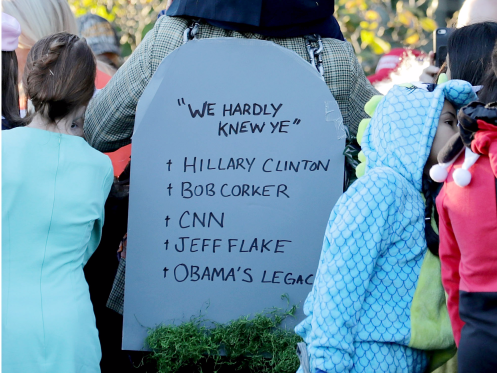 "WE HARDLY
KNEW YE"
† HILLARY CLINTON
† BOB CORKER
† CNN
† JEFF FLAKE
† OBAMA'S LEGAC